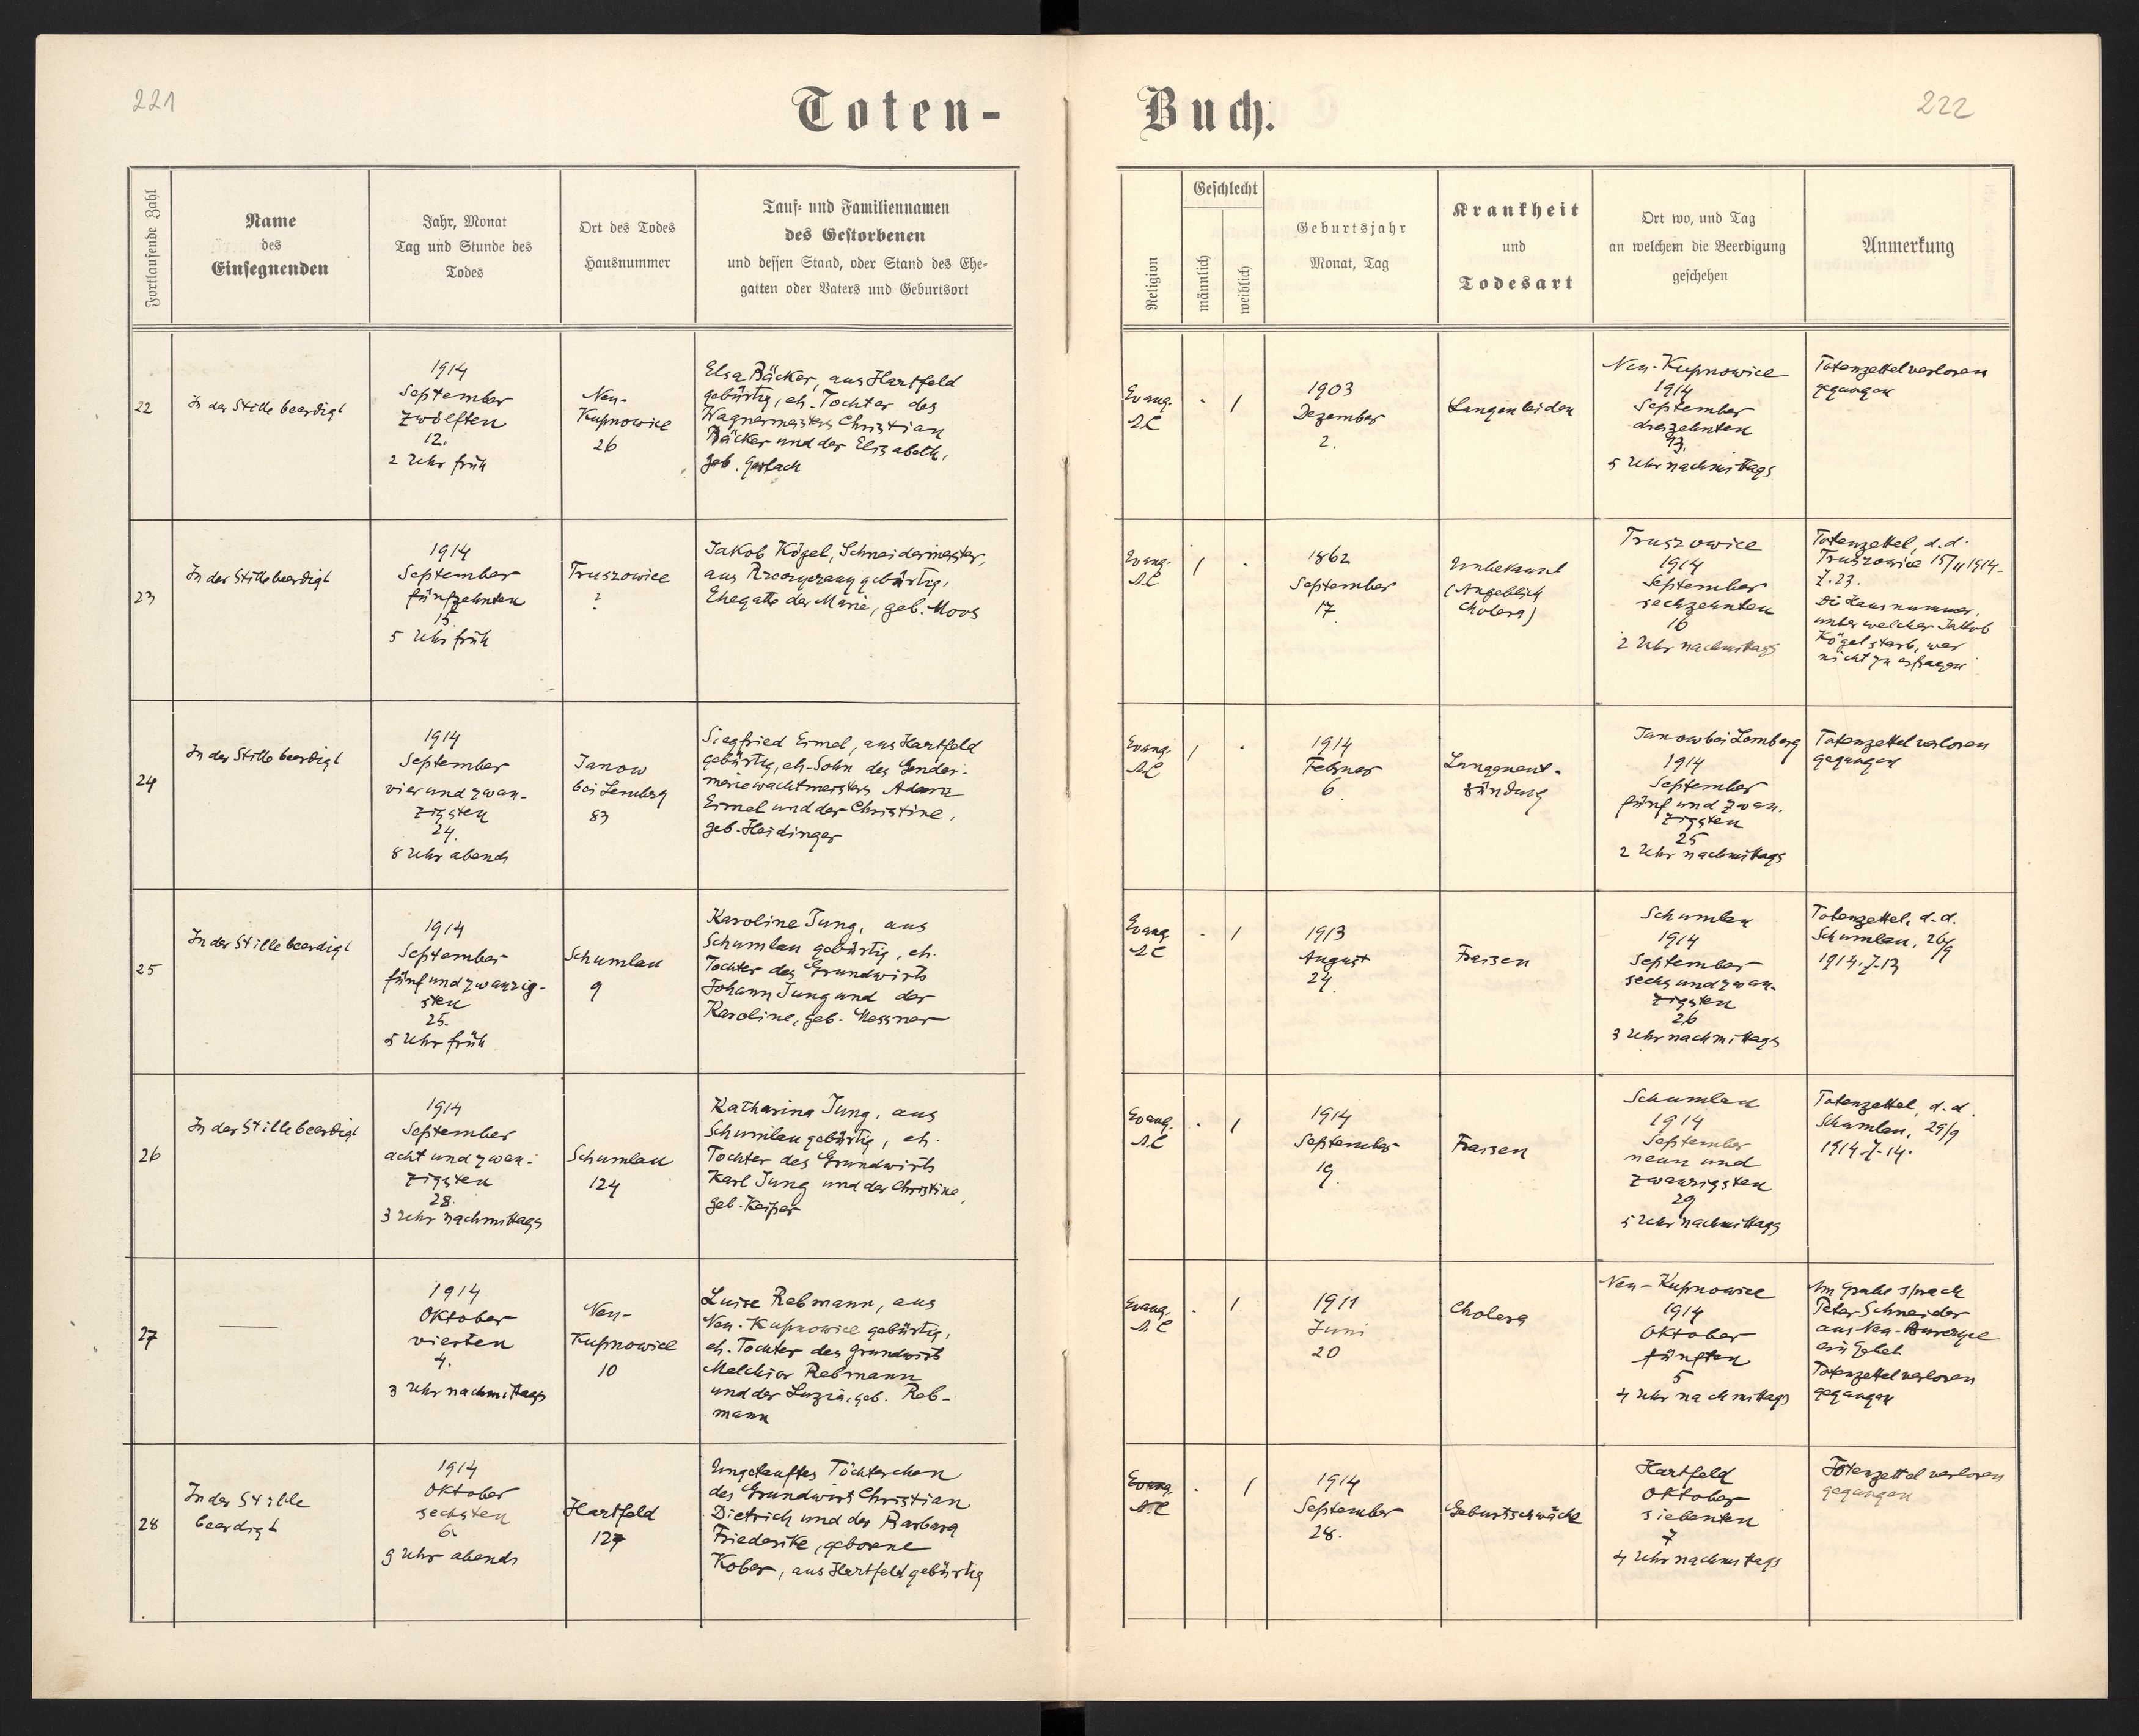 221
Toten-
Buch.
222
Fortlaufende Zahl
Name
des
Einsegnenden
Jahr, Monat
Tag und Stunde des
Todes
Ort des Todes
Hausnummer
Tauf- und Familiennamen
des Gestorbenen
und dessen Stand, oder Stand des Ehe-
gatten oder Vaters und Geburtsort
Religion
Geschlecht
männlich
weiblich
Geburtsjahr
Monat, Tag
Krankheit
und
Todesart
Ort wo, und Tag
an welchem die Beerdigung
geschehen
Anmerkung
22
In der Stille beerdigt
1914
September
zwölften
12.
2 Uhr früh
Neu-
Kupnowice
26
Elsa Bäcker, aus Hartfeld
gebürtig, eh. Tochter des
Wagnermeisters Christian
Bäcker und der Elisabeth,
geb. Gerlach
Evang.
A.C
. 1
1903
Dezember
2.
Lungenleiden
Neu-Kupnowice
1914
September
dreizehnten
13.
5 Uhr nachmittags
Totenzettel verloren
gegangen
23
In der Stille beerdigt
1914
September
fünfzehnten
15.
5 Uhr früh
Truszowice
?
Jakob Kögel, Schneidermeister,
aus gebürtig,
Ehegatte der Marie, geb. Moos
Evang.
A.C
1 .
1862
September
17.
Unbekannt
(Angeblich
Cholera)
Truszowice
1914
September
sechzehnten
16
2 Uhr nachmittags
Totenzettel, d.d.
Truszowice 1914-
Z. 23.
Die Hausnummer,
unter welcher Jakob
Kögel starb, war
nicht zu erfragen
24
In der Stille beerdigt
1914
September
vierundzwan-
zigsten
24.
8 Uhr abends
Janow
bei Lemberg
83
Siegfried Eimel, aus Hartfeld
gebürtig, eh. Sohn des Gendar-
meriewachtmeisters Adam
Eimel und der Christine,
geb. Heidinger
Evang.
A.C
1 .
1914
Februar
6.
Lungenent-
zündung
Janow bei Lemberg
1914
September
fünf und zwan-
zigsten
25
2 Uhr nachmittags
Totenzettel verloren
gegangen
25
In der Stille beerdigt
1914
September
fünfundzwanzig-
sten
25.
5 Uhr früh
Schumlau
9
Karoline Jung, aus
Schumlau gebürtig, eh.
Tochter des Grundwirts
Johann Jung und der
Karoline, geb. Messner
Evang.
A.C
. 1
1913
August
24.
Fraisen
Schumlau
1914
September
sechsundzwan-
zigsten
26
3 Uhr nachmittags
Totenzettel, d.d.
Schumlau, 26/9
1914. Z. 13
26
In der Stille beerdigt
1914
September
acht und zwan-
zigsten
28.
3 Uhr nachmittags
Schumlau
124
Katharina Jung, aus
Schumlau gebürtig, eh.
Tochter des Grundwirts
Karl Jung und der Christine,
geb. Keiper
Evang.
A.C
. 1
1914
September
19.
Fraisen
Schumlau
1914
September
neun und
zwanzigsten
29
5 Uhr nachmittags
Totenzettel, d.d.
Schumlau, 29/9
1914 Z. 14.
27
1914
Oktober
vierten
4.
3 Uhr nachmittags
Neu-
Kupnowice
10
Luise Rebmann, aus
Neu-Kupnowice gebürtig,
eh. Tochter des Grundwirts
Melchior Rebmann
und der Luzia, geb. Reb-
mann
Evang.
A.C
. 1
1911
Juni
20
Cholera
Neu-Kupnowice
1914
Oktober
fünften
5
4 Uhr nachmittags
Am Grabe sprach
Peter Schneider
aus Neu-
ein Gebet
Totenzettel verloren
gegangen
28
In der Stille
beerdigt
1914
Oktober
sechsten
6.
9 Uhr abends
Hartfeld
127
Ungetauftes Töchterchen
des Grundwirts Christian
Dietrich und der Barbara
Friederike, geborene
Kober, aus Hartfeld gebürtig
Evang.
A.C
. 1
1914
September
28.
Geburtsschwäche
Hartfeld
Oktober
siebenten
7
4 Uhr nachmittags
Totenzettel verloren
gegangen